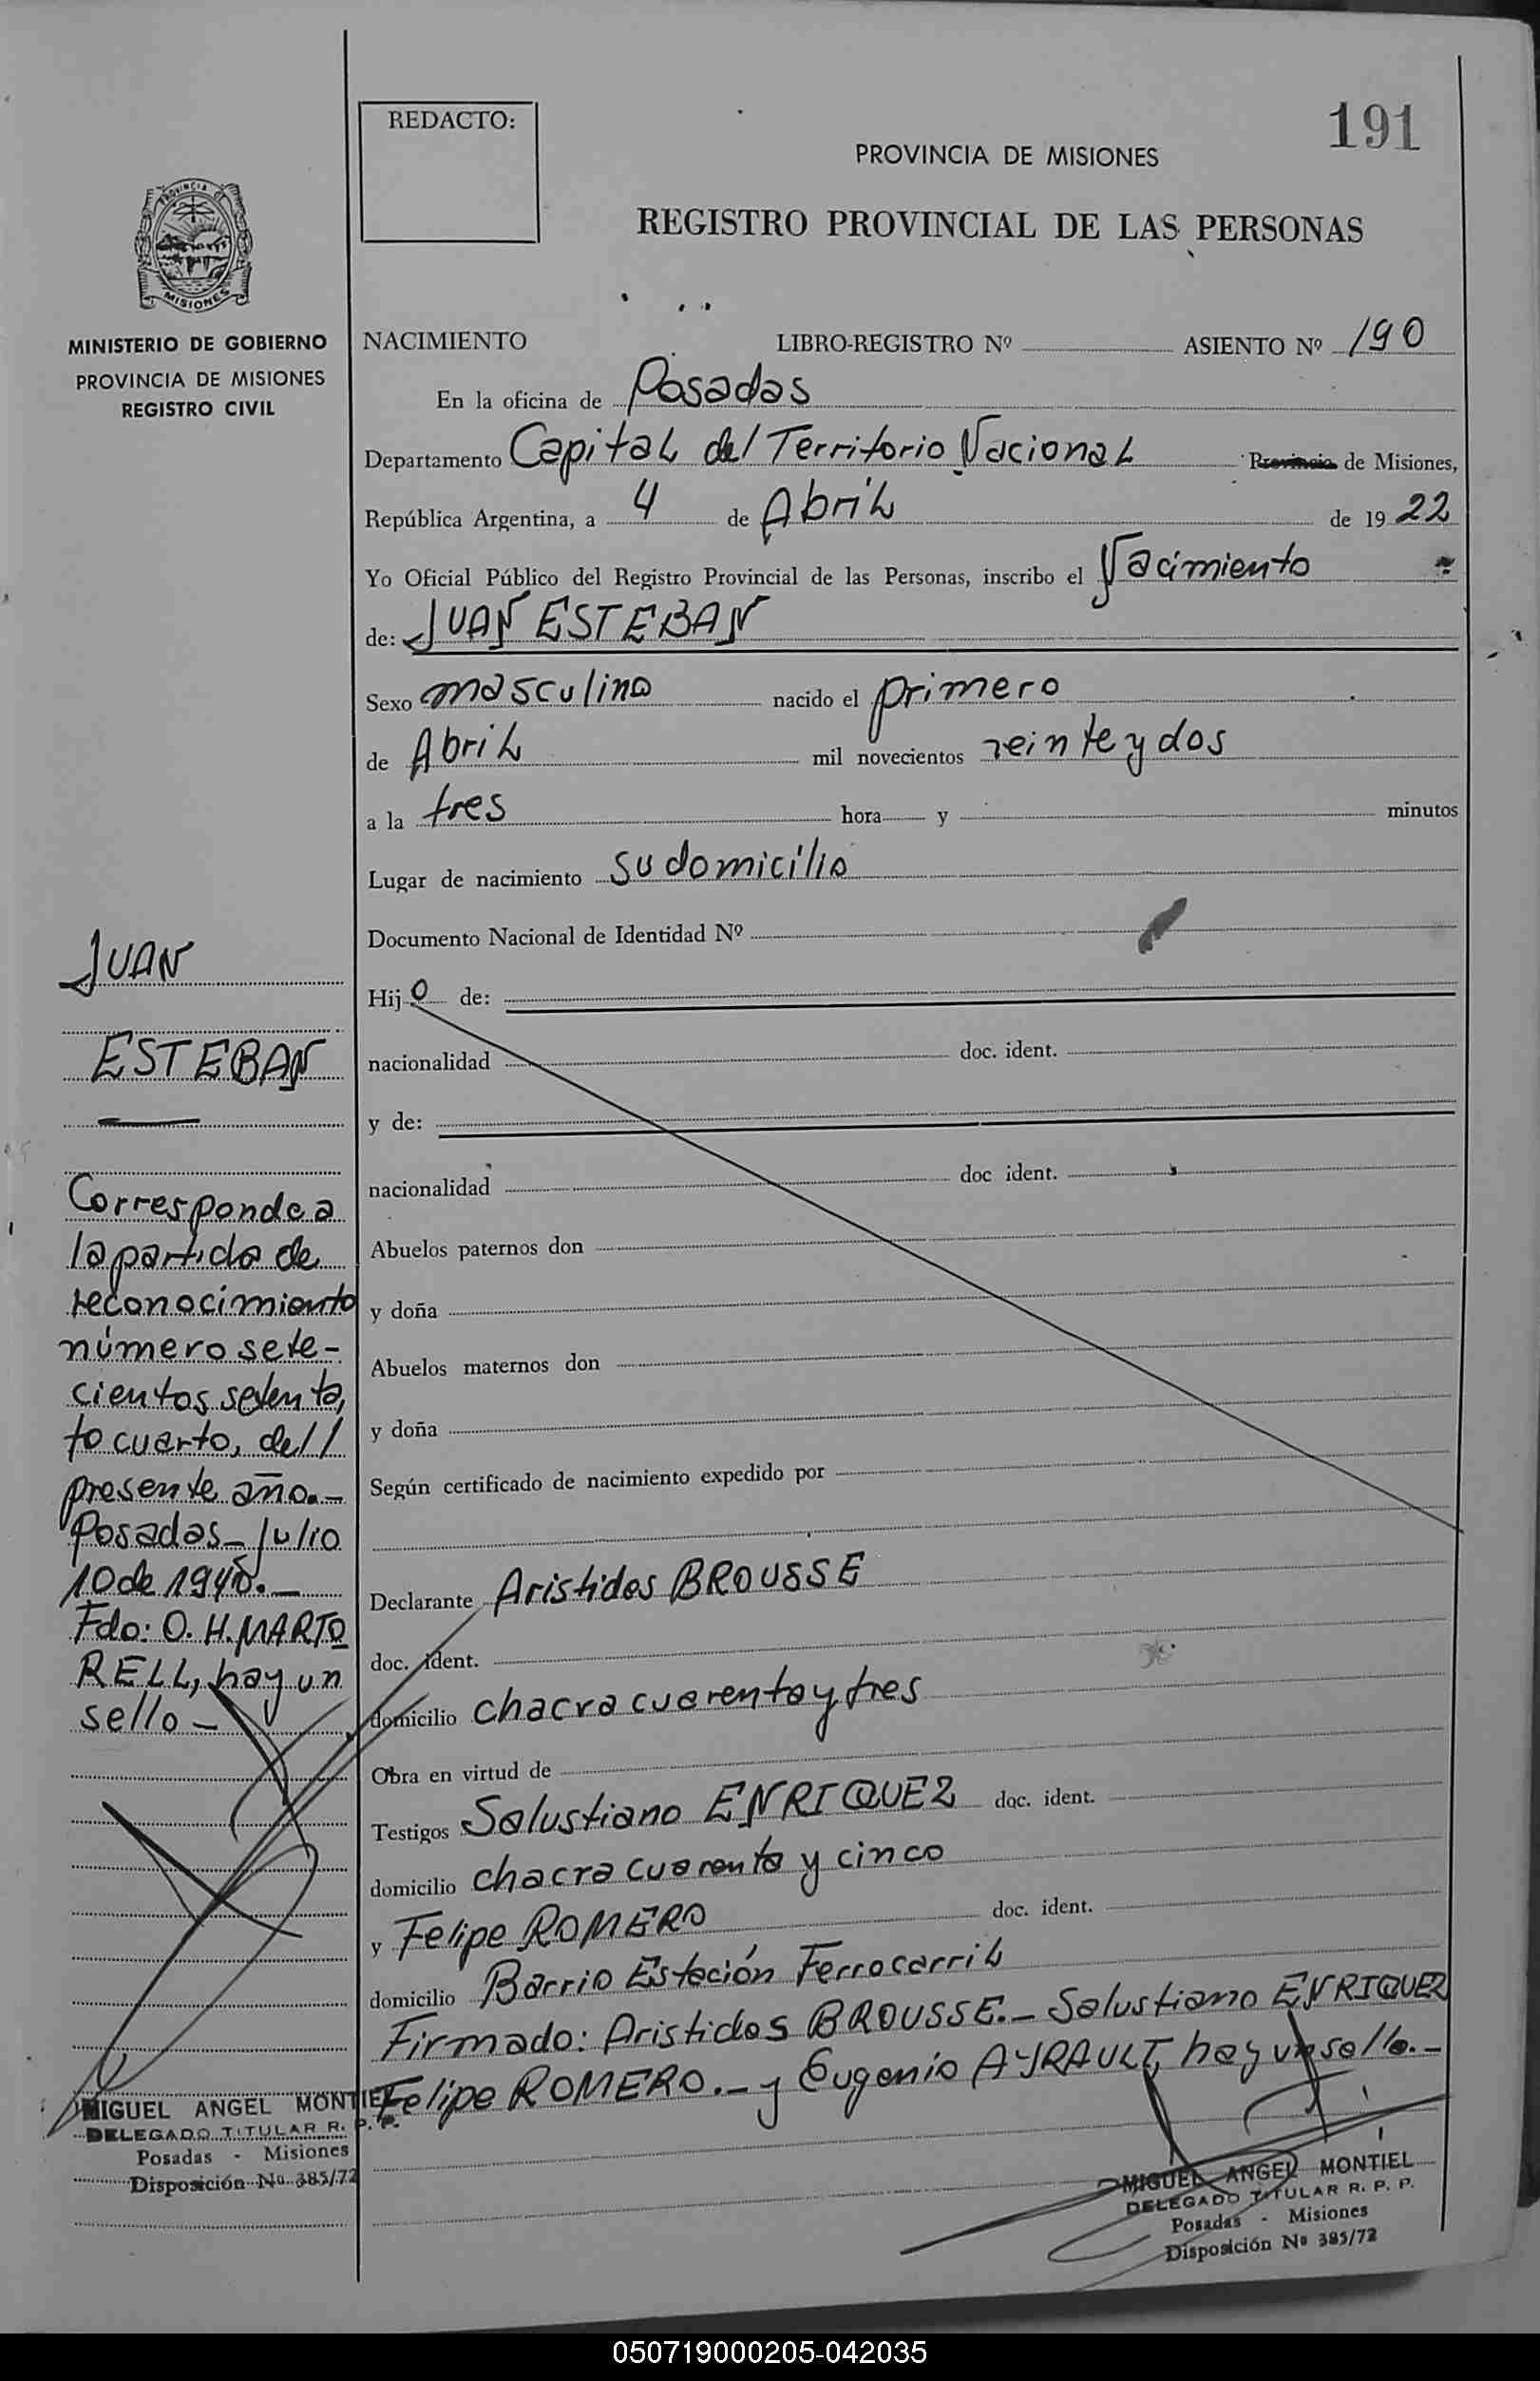 REDACTO:
191
PROVINCIA DE MISIONES
REGISTRO PROVINCIAL DE LAS PERSONAS
PROVINCIA DE
MISIONES
MINISTERIO DE GOBIERNO
PROVINCIA DE MISIONES
REGISTRO CIVIL
NACIMIENTO LIBRO-REGISTRO Nº ASIENTO Nº 190
En la oficina de Posadas
Departamento Capital del Territorio Nacional Provincia de Misiones,
República Argentina, a 4 de Abril de 1922
Yo Oficial Público del Registro Provincial de las Personas, inscribo el Nacimiento
de: JUAN ESTEBAN
Sexo masculino nacido el primero
de Abril mil novecientos veinte y dos
a la tres hora y minutos
Lugar de nacimiento su domicilio
Documento Nacional de Identidad Nº
Hijo de:
nacionalidad doc. ident.
y de:
nacionalidad doc ident.
Abuelos paternos don
y doña
Abuelos maternos don
y doña
Según certificado de nacimiento expedido por
Declarante Aristides BROUSSE
doc. ident.
domicilio chacra cuarenta y tres
Obra en virtud de
Testigos Salustiano ENRIQUEZ doc. ident.
domicilio chacra cuarenta y cinco
y Felipe ROMERO doc. ident.
domicilio Barrio Estación Ferrocarril
Firmado: Aristides BROUSSE.- Salustiano ENRIQUEZ
Felipe ROMERO.- y Eugenio AYRAULT, hay un sello.-
MIGUEL ANGEL MONTIEL
DELEGADO TITULAR R. P. P.
Posadas - Misiones
Disposición Nº 385/72
JUAN
ESTEBAN
Corresponde a
la partida de
reconocimiento
número sete-
cientos
to cuarto, del
presente año.-
Posadas- Julio
10 de
Fdo: O. H. MARTO
RELL, hay un
sello-
MIGUEL ANGEL MONTIEL
DELEGADO TITULAR R. P. P.
Posadas - Misiones
Disposición Nº 385/72
050719000205-042035